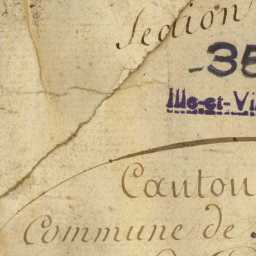 Section
-35
Ille-et-Vi
Canton
Commune de